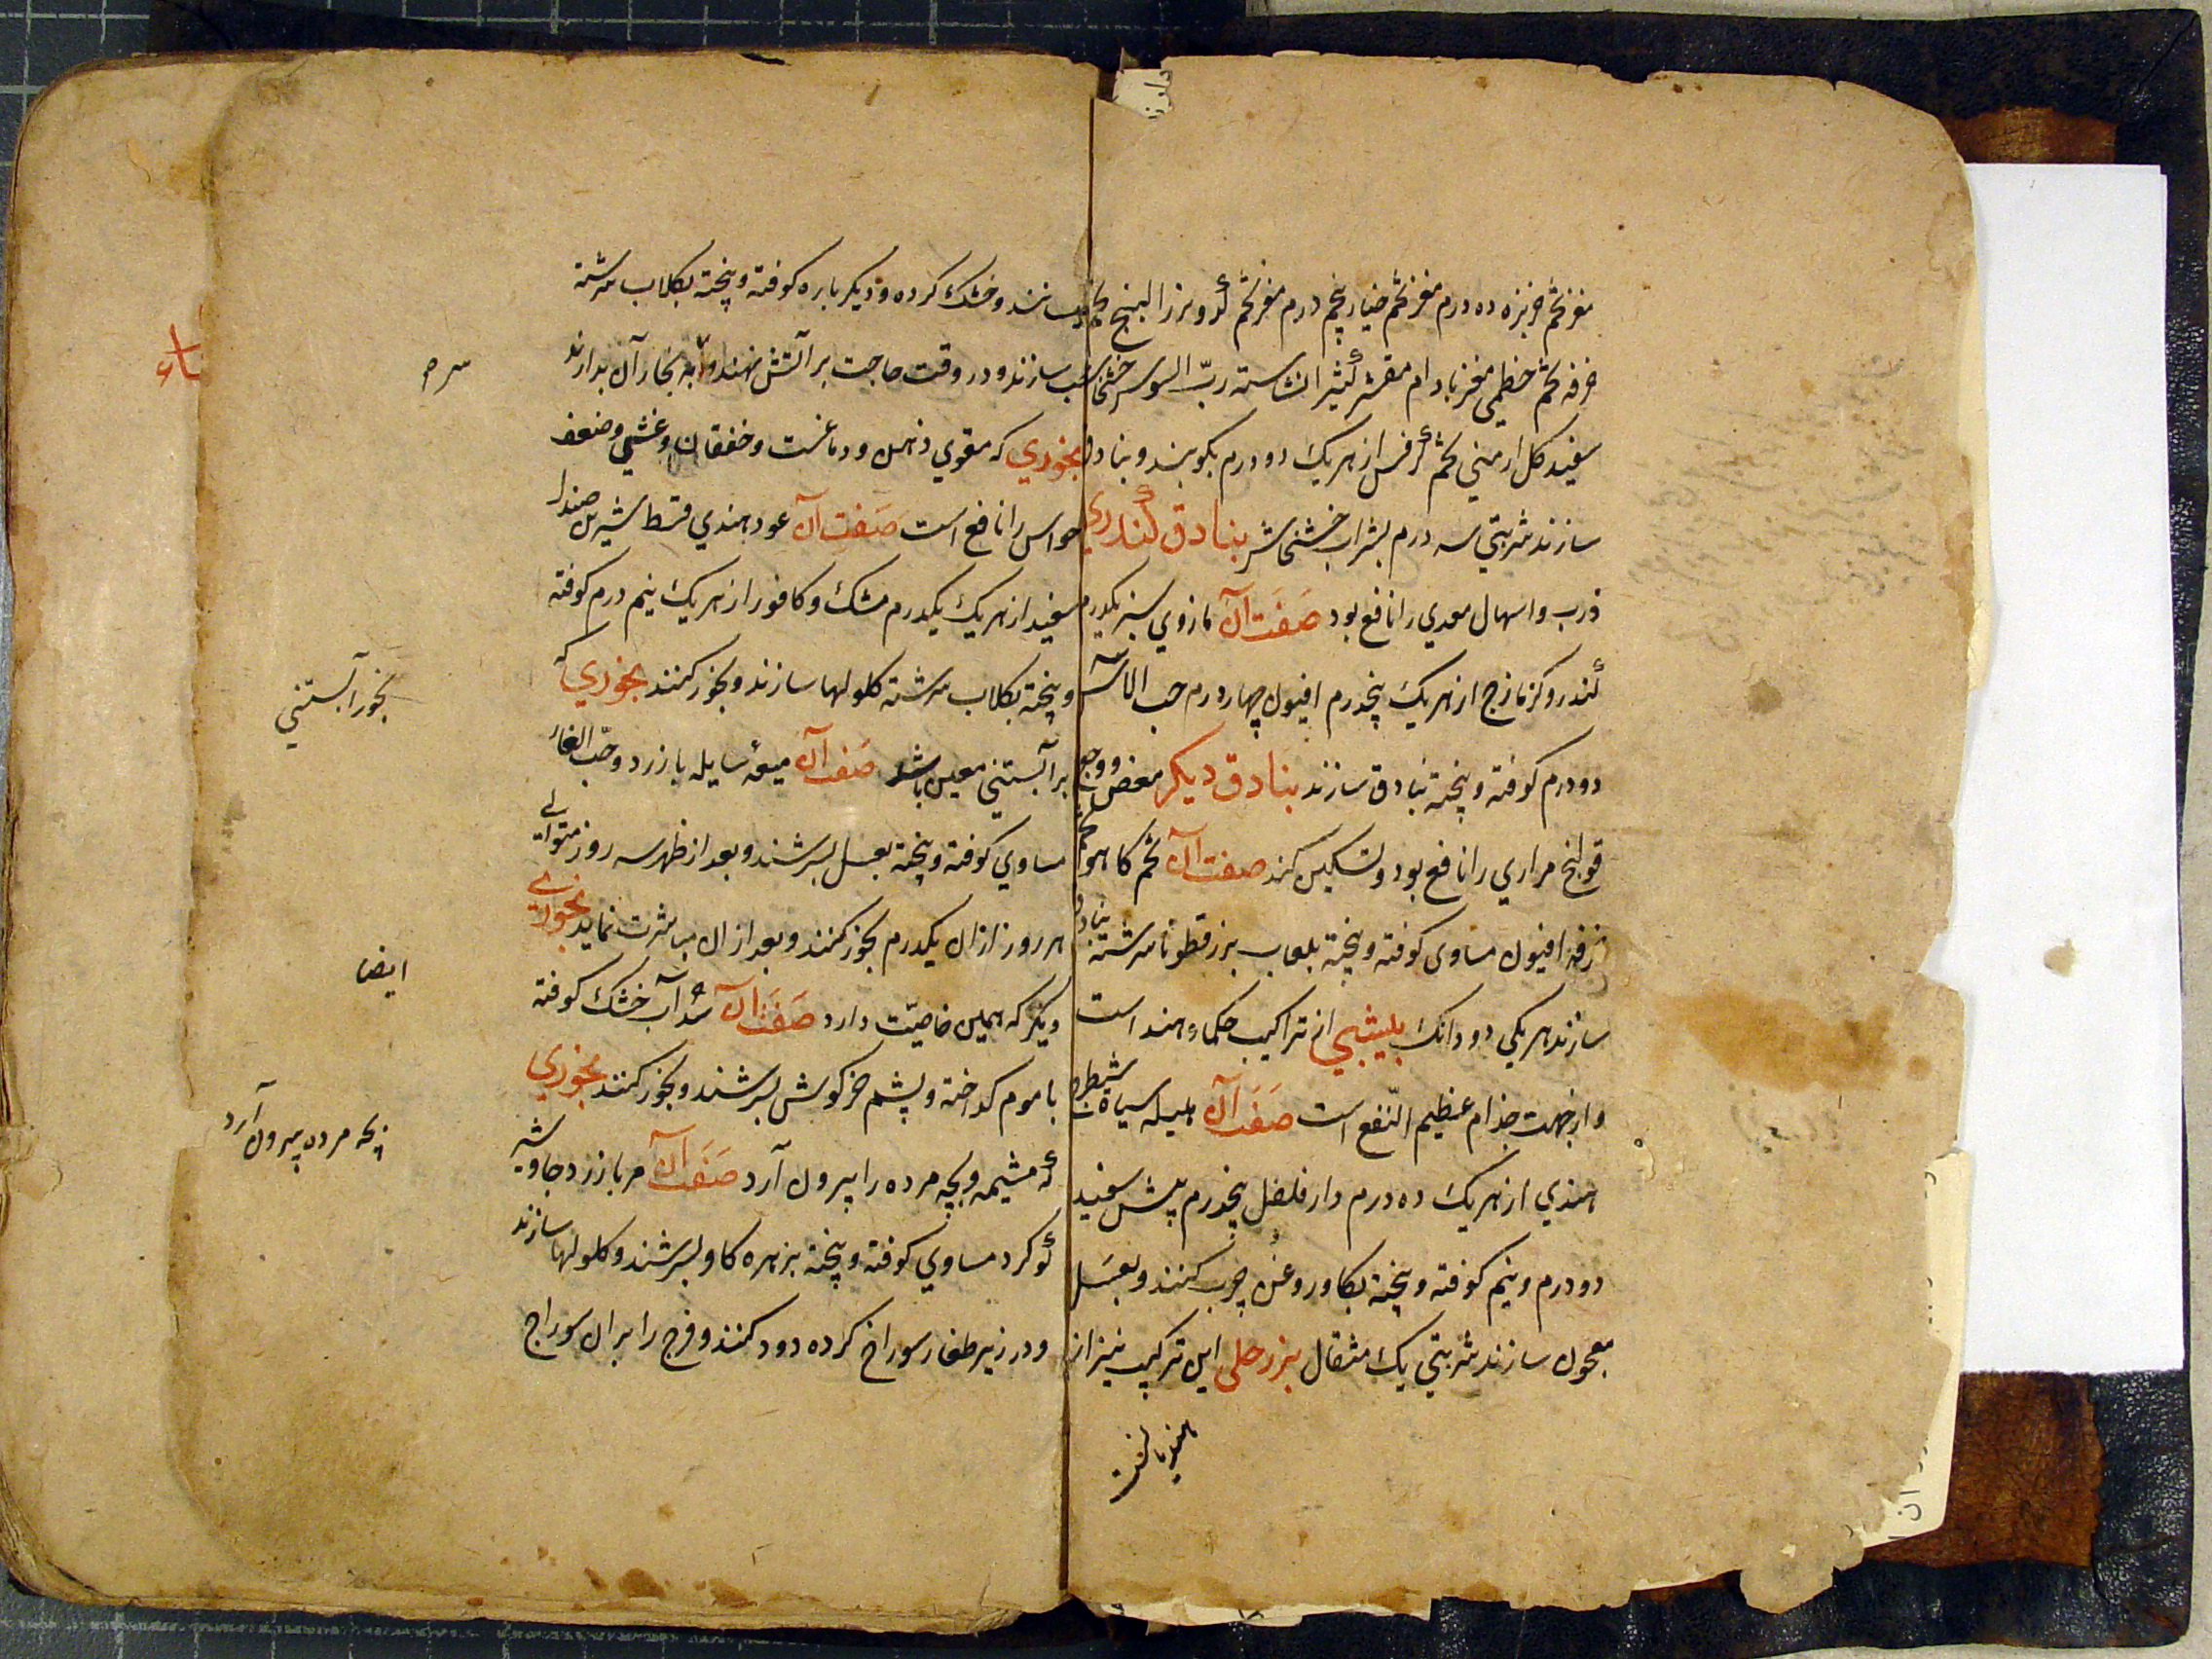 مغز تخم خربزه ده درم مغز تخم خیار پنج درم مغز تخم کدو بزر البنج تخم
خرفه تخم خطمی مغز بادام مقشر کثیرا نشاسته ربّ السوس خشخاش
سفید کل ارمنی تخم کرفس از هریک دو درم بکوبند و بنادق
سازند شربتی سه درم بشراب خشخاش بنادق کندری
ذرب و اسهال معدی را نافع بود صفت آن مازوی سبز یکدرم
کندر و کزمازج از هریک پنجدرم افیون چهار درم حب الآس
دو درم کوفته و پخته بنادق سازند بنادق دیکر مغص و وجع
قولنج مراری را نافع بود و تسکین کند صفت آن تخم کاهو تخم
خرفه افیون مساوی کوفته و پخته بلعاب بزر قطونا سرشته بنادق
سازند هر یکی دو دانک بلیشجی از تراکیب حکماء هند است
و از جهت جذام عظیم النّفع است صفت آن هلیله سیاه شیطرج
هندی از هریک ده درم دارفلفل پنجدرم بیش سفید
دو درم و نیم کوفته و پخته بکاو روغن چرب کنند و بعسل
معجون سازند شربتی یک مثقال بزرجلی این ترکیب نیز از
سازند و خشک کرده و دیکر باره کوفته و پخته بکلاب سرشته
شب سازند و در وقت حاجت بر آتش نهند و به بخار آن بدارند
بخوری که مقوی ذهن و دماغست و خفقان و غشی و ضعف
حواس را نافع است صفت آن عود هندی قسط شیرین صندل
سفید از هریک یکدرم مشک و کافور از هریک نیم درم کوفته
و پخته بکلاب سرشته کلولها سازند و بخور کنند بخوری که
بر آبستنی معین باشد صفت آن میعه سایله بارزد و حبّ الغار
مساوی کوفته و پخته بعسل بسرشند و بعد از ظهر سه روز متوالی
هر روز از آن یکدرم بخور کنند و بعد از آن مباشرت نماید بخوری
دیکر که همین خاصیّت دارد صفت آن سداب خشک کوفته
با موم کداخته و پشم خرکوش بسرشند و بخور کنند بخوری
که مشیمه و بچه مرده را بیرون آرد صفت آن مر بارزد جاوشیر
کوکرد مساوی کوفته و پخته بزهره کاو بسرشند و کلولها سازند
و در زیر طغار سوراخ کرده دود کنند و فرج را بر آن سوراخ
بخور آبستنی
ایضا
بچه مرده بیرون آرد